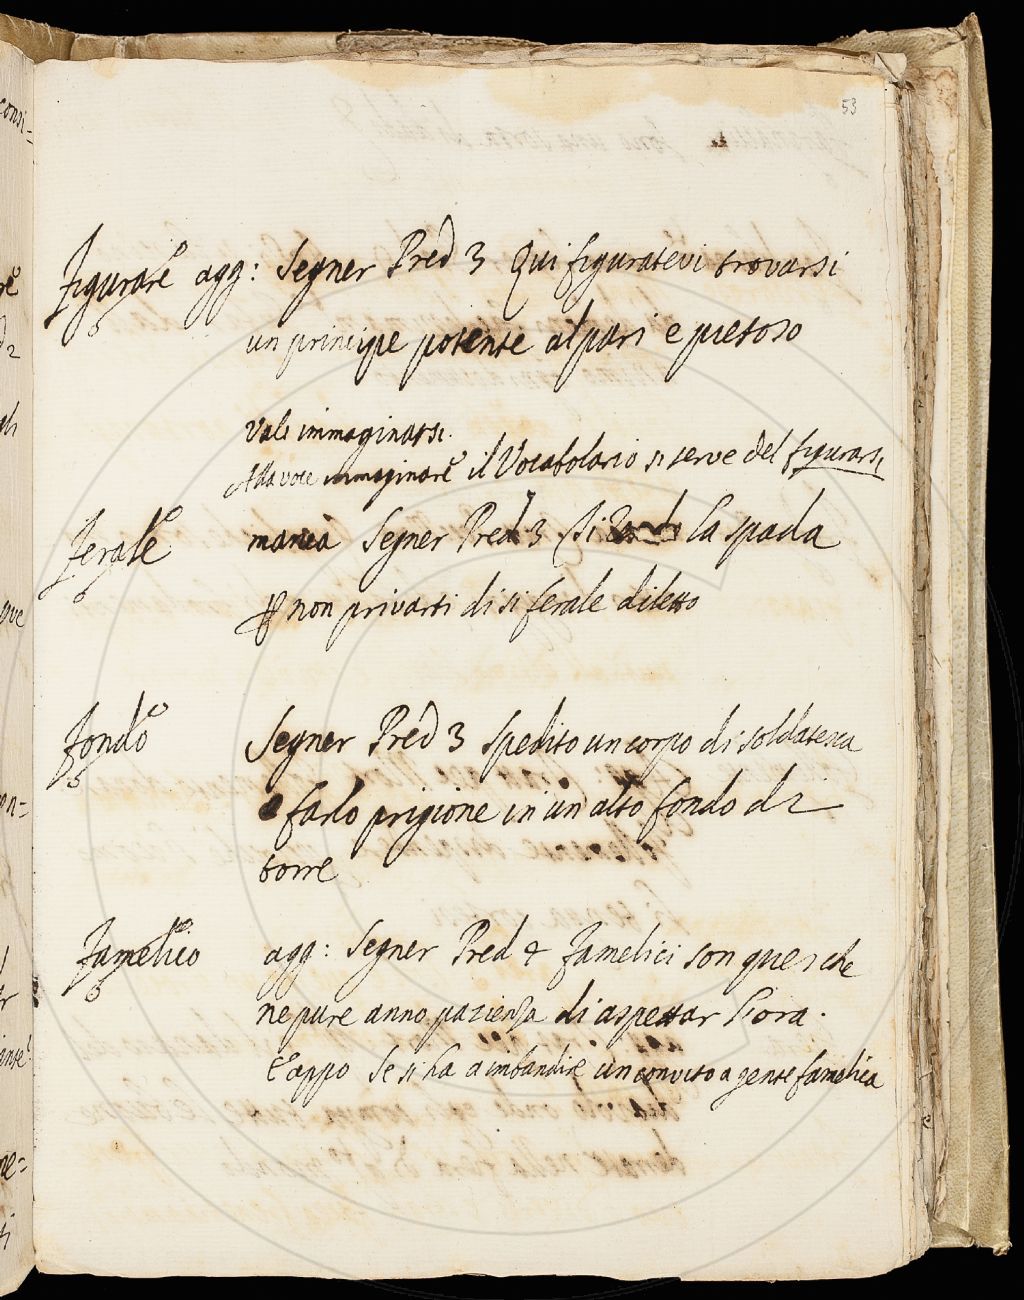 53
Figurare agg: Segner Pred 3 Qui figuratevi trovarsi
un principe potente al pari e pietoso
Vale immaginarsi.
Alla voce immaginare il Vocabolario si serve del figurarsi
Ferale manca Segner Pred. 3 la spada
non privarti di si ferale diletto
Fondo Segner Pred 3 Spedito un corpo di soldatesca
e farlo prigione in un alto fondo di
torre
Famelico agg: Segner Pred Famelici son quei che
ne pure anno pazienza di aspettar l'ora.
E appo Se si ha a imbandire un convito a gente famelica